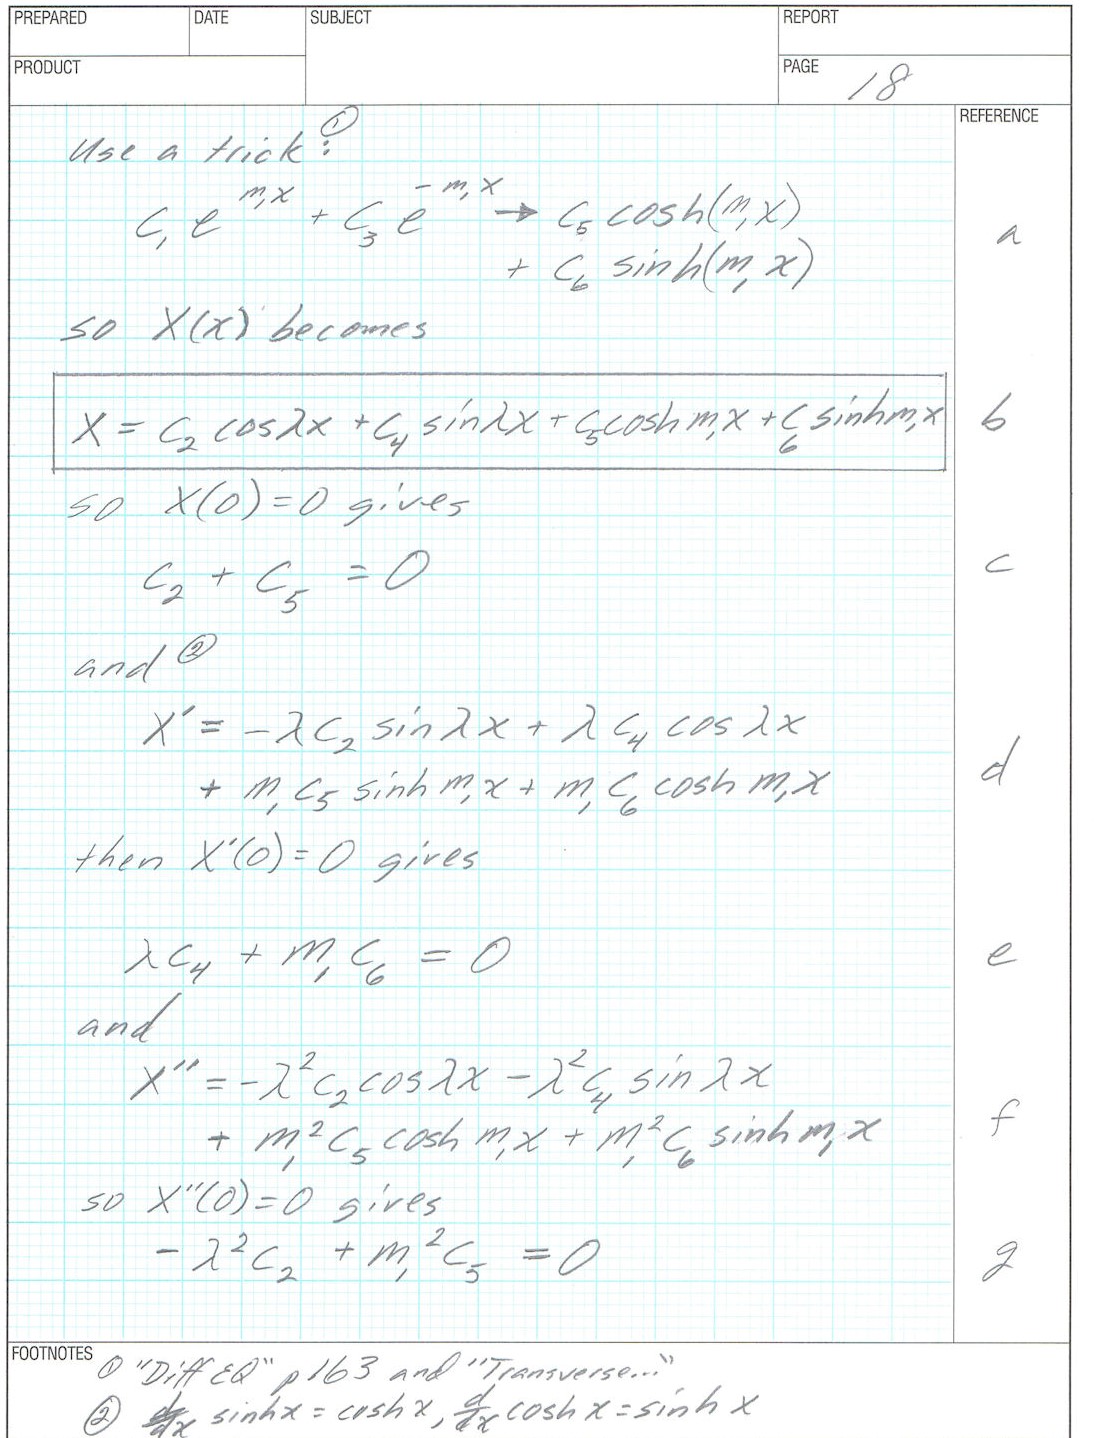 PREPARED DATE SUBJECT REPORT
PRODUCT PAGE 18
REFERENCE
Use a trick ①:
C₁ e^(m₁x) + C₃ e^(-m₁x) → C₅ cosh(m₁x) a
+ C₆ sinh(m₁x)
so X(x) becomes
X = C₂ cosλx + C₄ sinλx + C₅ cosh m₁x + C₆ sinh m₁x b
so X(0) = 0 gives
C₂ + C₅ = 0 c
and ②
X' = -λC₂ sin λx + λC₄ cos λx
+ m₁C₅ sinh m₁x + m₁C₆ cosh m₁x d
then X'(0) = 0 gives
λC₄ + m₁C₆ = 0 e
and
X'' = -λ²C₂ cosλx - λ²C₄ sin λx
+ m₁²C₅ cosh m₁x + m₁²C₆ sinh m₁x f
so X''(0) = 0 gives
-λ²C₂ + m₁²C₅ = 0 g
FOOTNOTES ① "Diff EQ" p 163 and "Transverse..."
② d/dx sinhx = coshx, d/dx cosh x = sinh x